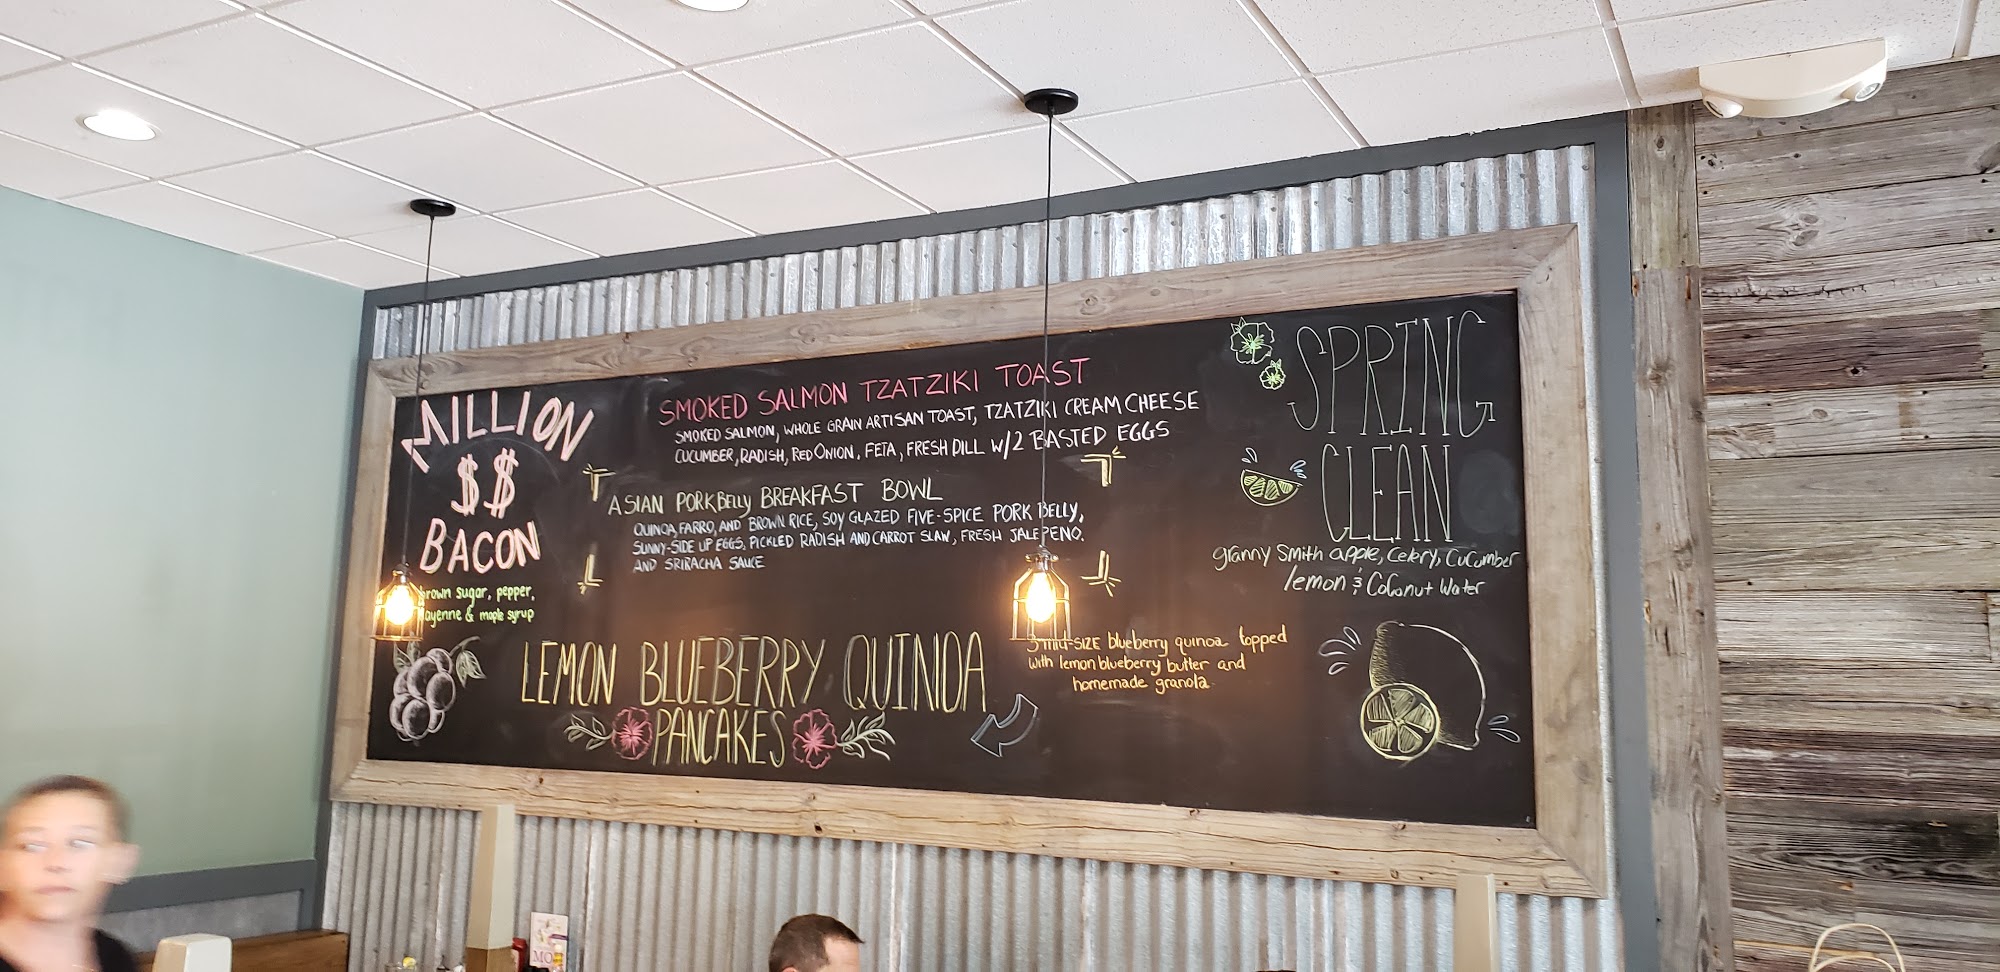 MILLION
$$
BACON
brown sugar, pepper,
cayenne & maple syrup
SMOKED SALMON TZATZIKI TOAST
SMOKED SALMON, WHOLE GRAIN ARTISAN TOAST, TZATZIKI CREAM CHEESE
CUCUMBER, RADISH, RED ONION, FETA, FRESH DILL W/2 BASTED EGGS
ASIAN PORKBELLY BREAKFAST BOWL
QUINOA, FARRO, AND BROWN RICE, SOY GLAZED FIVE-SPICE PORK BELLY,
SUNNY-SIDE UP EGGS, PICKLED RADISH AND CARROT SLAW, FRESH JALEPENO.
AND SRIRACHA SAUCE
LEMON BLUEBERRY QUINOA
PANCAKES
3 mid-SIZE blueberry quinoa topped
with lemon blueberry butter and
homemade granola
SPRING
CLEAN
granny Smith apple, Celery, Cucumber
lemon & Coconut Water
MO